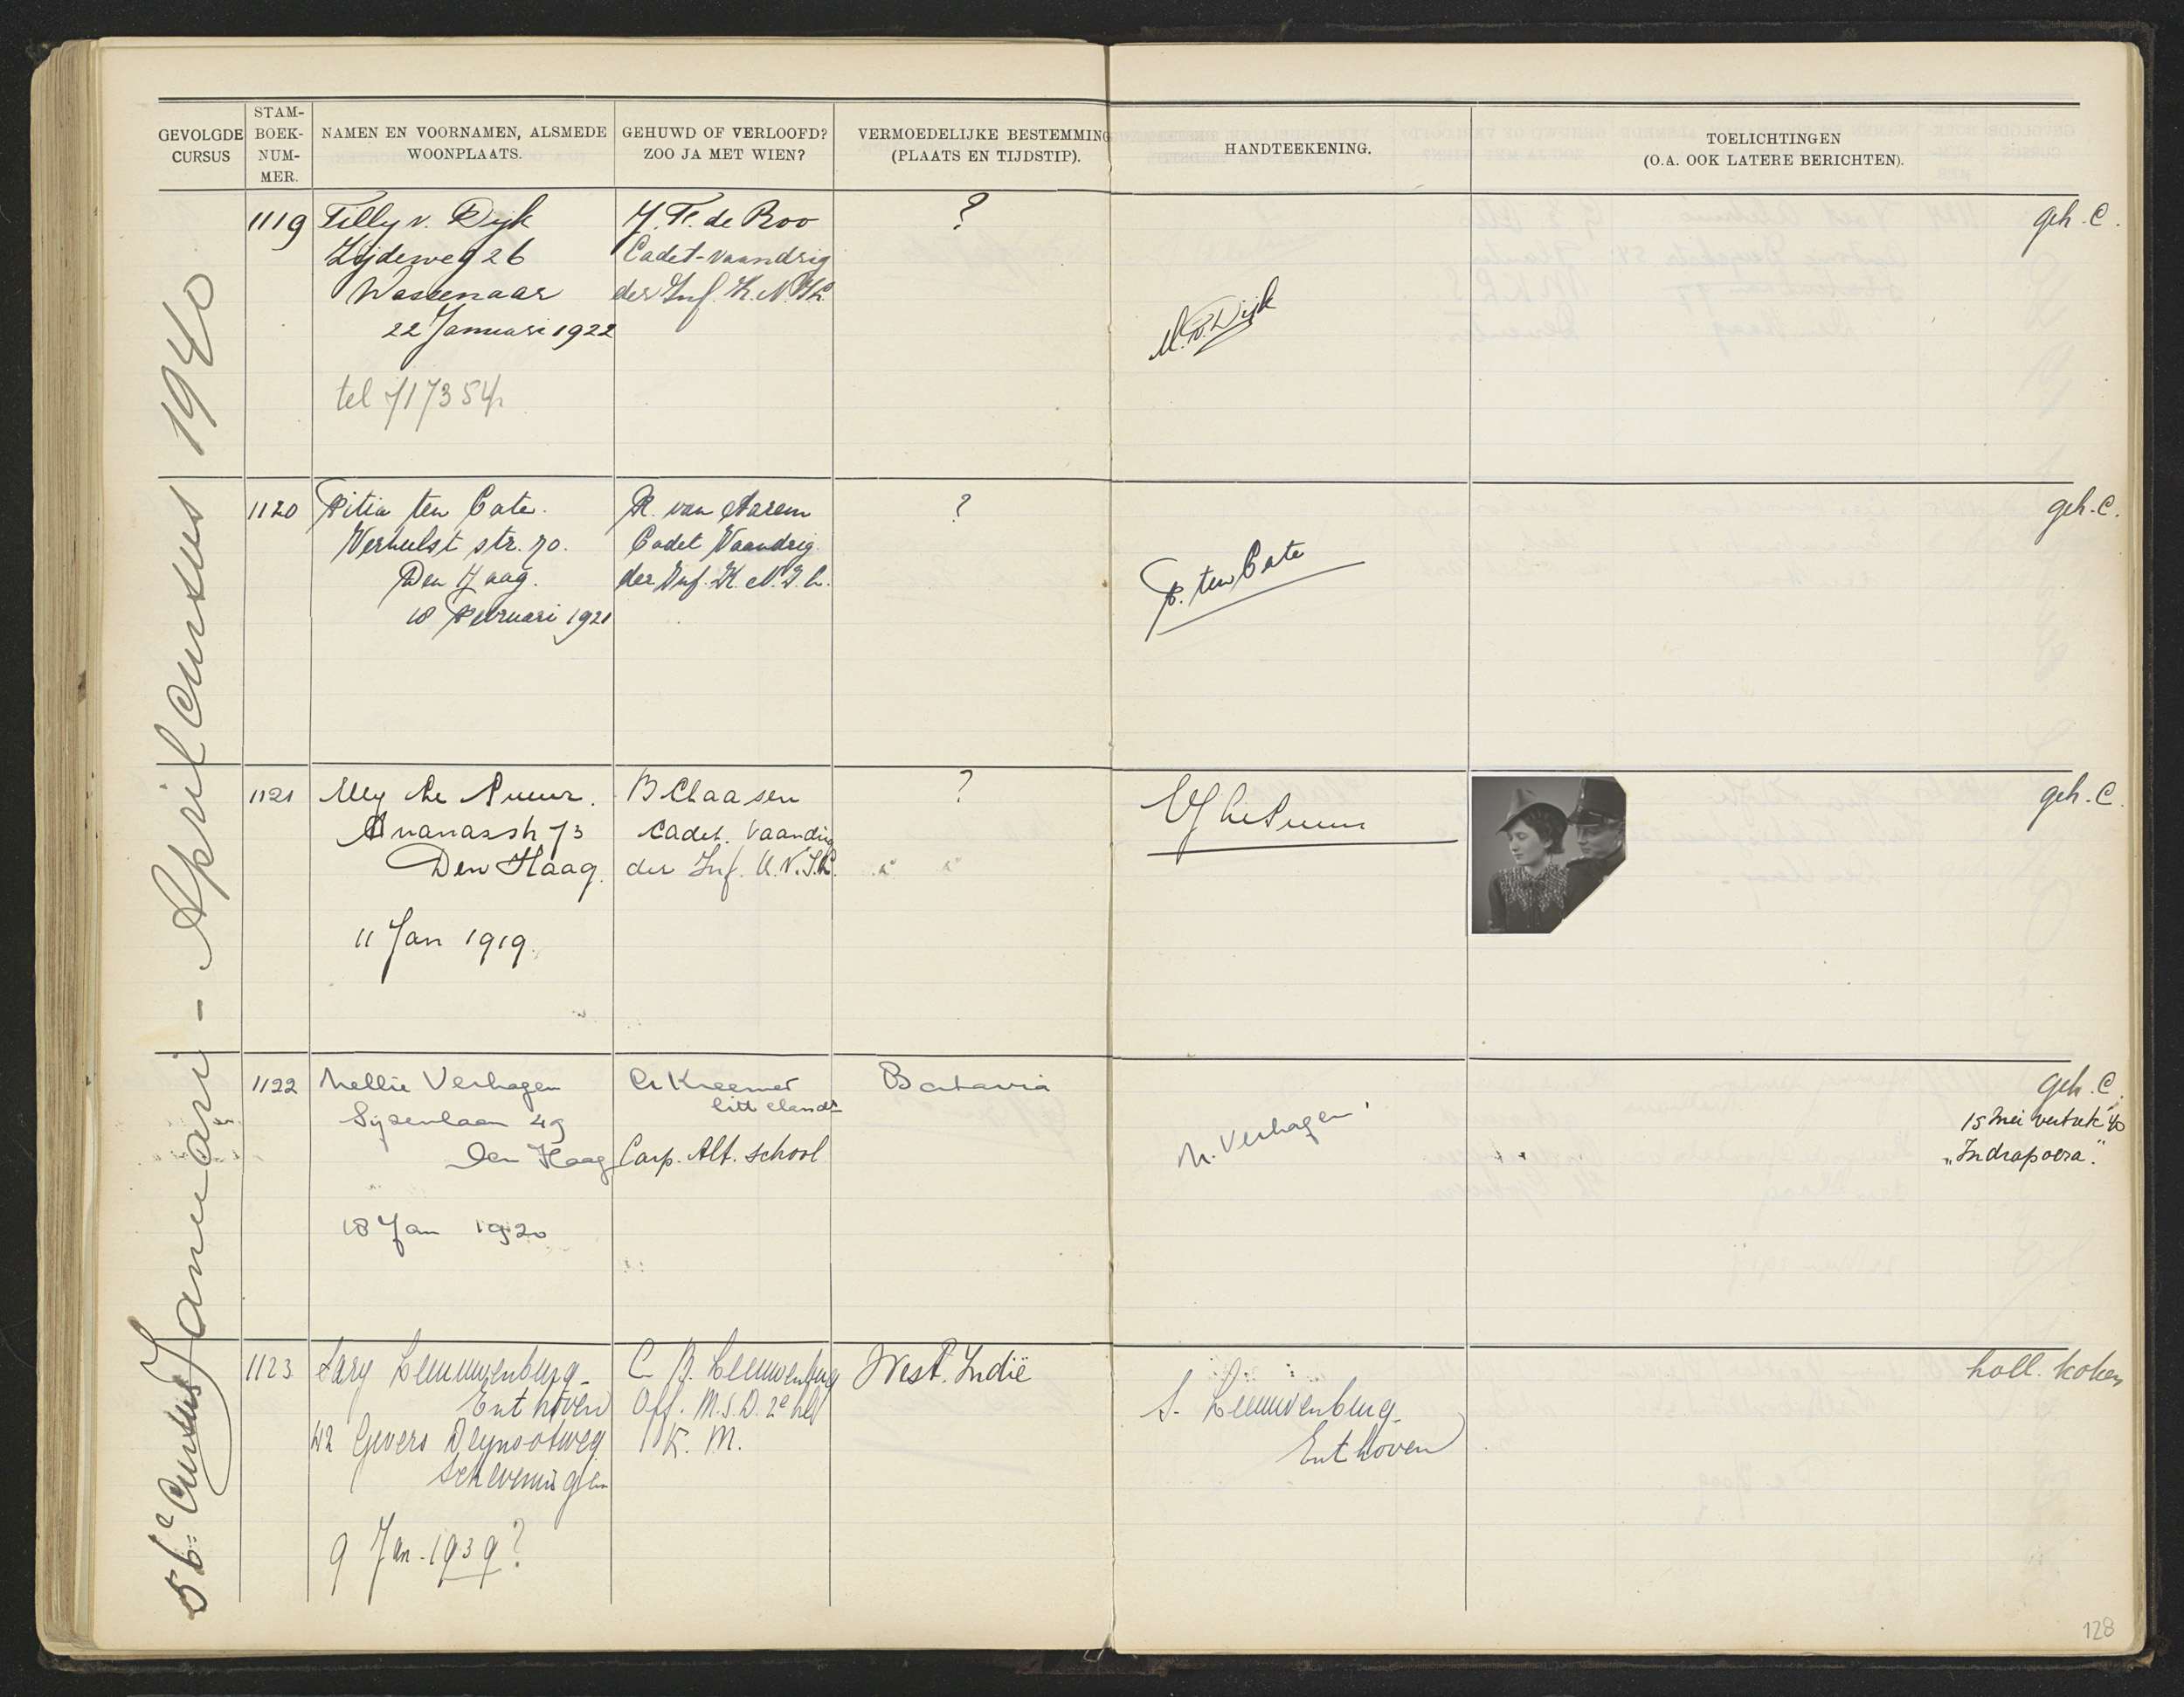 GEVOLGDE CURSUS
STAM-BOEK-NUM-MER.
NAMEN EN VOORNAMEN, ALSMEDE WOONPLAATS.
GEHUWD OF VERLOOFD? ZOO JA MET WIEN?
VERMOEDELIJKE BESTEMMING (PLAATS EN TIJDSTIP).
HANDTEEKENING.
TOELICHTINGEN (O.A. OOK LATERE BERICHTEN).
56e Cursus Januari - Aprilcursus 1940
1119
Tilly v. Dijk
Zijdeweg 26
Wassenaar
22 Januari 1922
tel 717354
de Roo
Cadet-vaandrig
der Inf. K.N.I.L.
?
v. Dijk
geh. C.
1120
Pitia ten Cate.
Verhulst str. 70.
Den Haag.
18 Februari 1921
R. van
Cadet Vaandrig
der Inf. K.N.I.L.
?
P. ten Cate
geh. C.
1121
Elly
73
Den Haag.
11 Jan 1919.
B Claasen
Cadet. Vaandrig
der Inf. K.N.I.L.
?
geh. C.
1122
Nellie Verhagen
49
Den Haag
18 Jan 1920
Kreemer
Corp. Alt. school
Batavia
N. Verhagen
geh. C.
15 Mei vertrek 40
„Indrapoera".
1123
Sary Leeuwenburg-
Enthoven
42 Gevers Deynootweg
Scheveningen
9 Jan. 1939?
C. B. Leeuwenburg
Off. M.S.D. 2e kl
K. M.
West. Indië
S. Leeuwenburg-
Enthoven
holl. koken
128